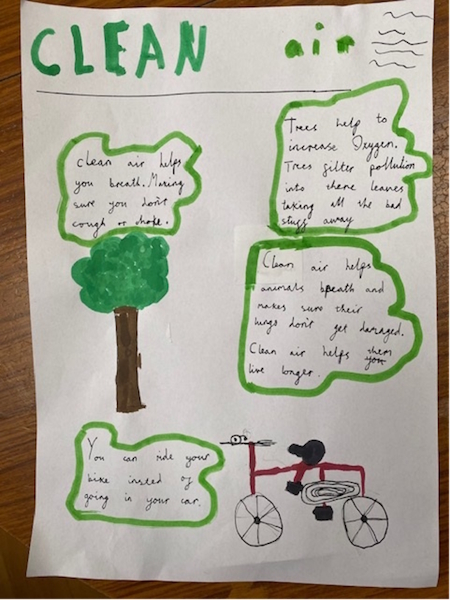 CLEAN air
clean air helps
you breath. Making
sure you don't
cough or choke.
Trees help to
increase Oxygen.
Trees filter pollution
into there leaves
taking all the bad
stuff away
Clean air helps
animals breath and
makes sure their
lungs don't get damaged.
Clean air helps them
live longer.
You can ride your
bike insted of
going in your car.